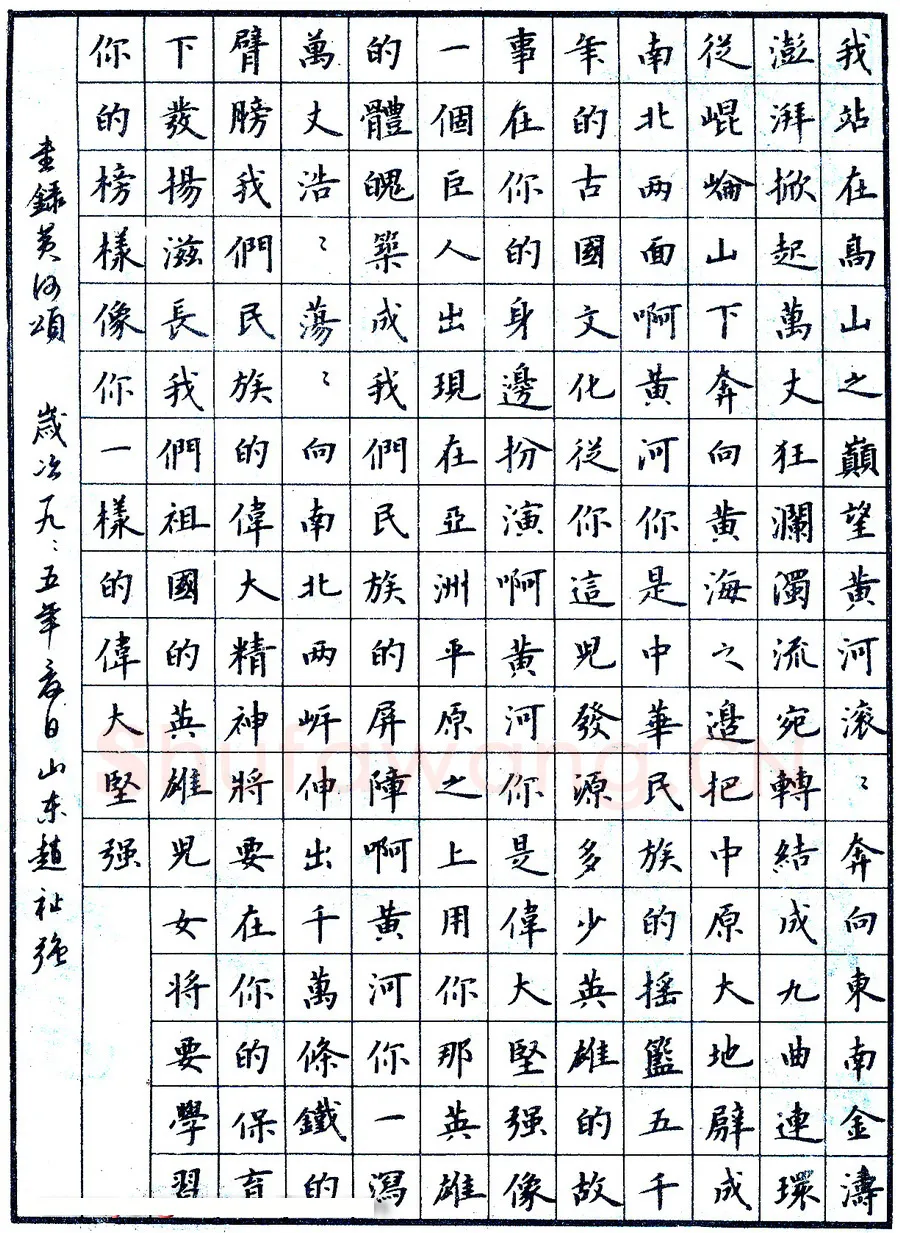 我站在高山之巔望黃河滚〻奔向東南金濤
澎湃掀起萬丈狂瀾濁流宛轉結成九曲連環
從崐崘山下奔向黃海之邊把中原大地劈成
南北兩面啊黃河你是中華民族的搖籃五千
年的古國文化從你這兒發源多少英雄的故
事在你的身邊扮演啊黃河你是偉大堅强像
一個巨人出現在亞洲平原之上用你那英雄
的體魄築成我們民族的屏障啊黃河你一瀉
萬丈浩〻蕩〻向南北兩岍伸出千萬條鐵的
臂膀我們民族的偉大精神將要在你的保育
下發揚滋長我們祖國的英雄兒女將要學習
你的榜樣像你一樣的偉大堅强
書錄黃河頌 歲次一九
五年
日山东趙祉强
Shufawang.CN